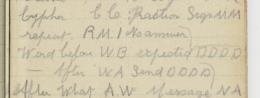 Cypher C.C. Fraction Sign M M
repeat R.M.I No answer
Word before W.B expected D D D D
— After W A Send D D D D
After What A.W Message N A